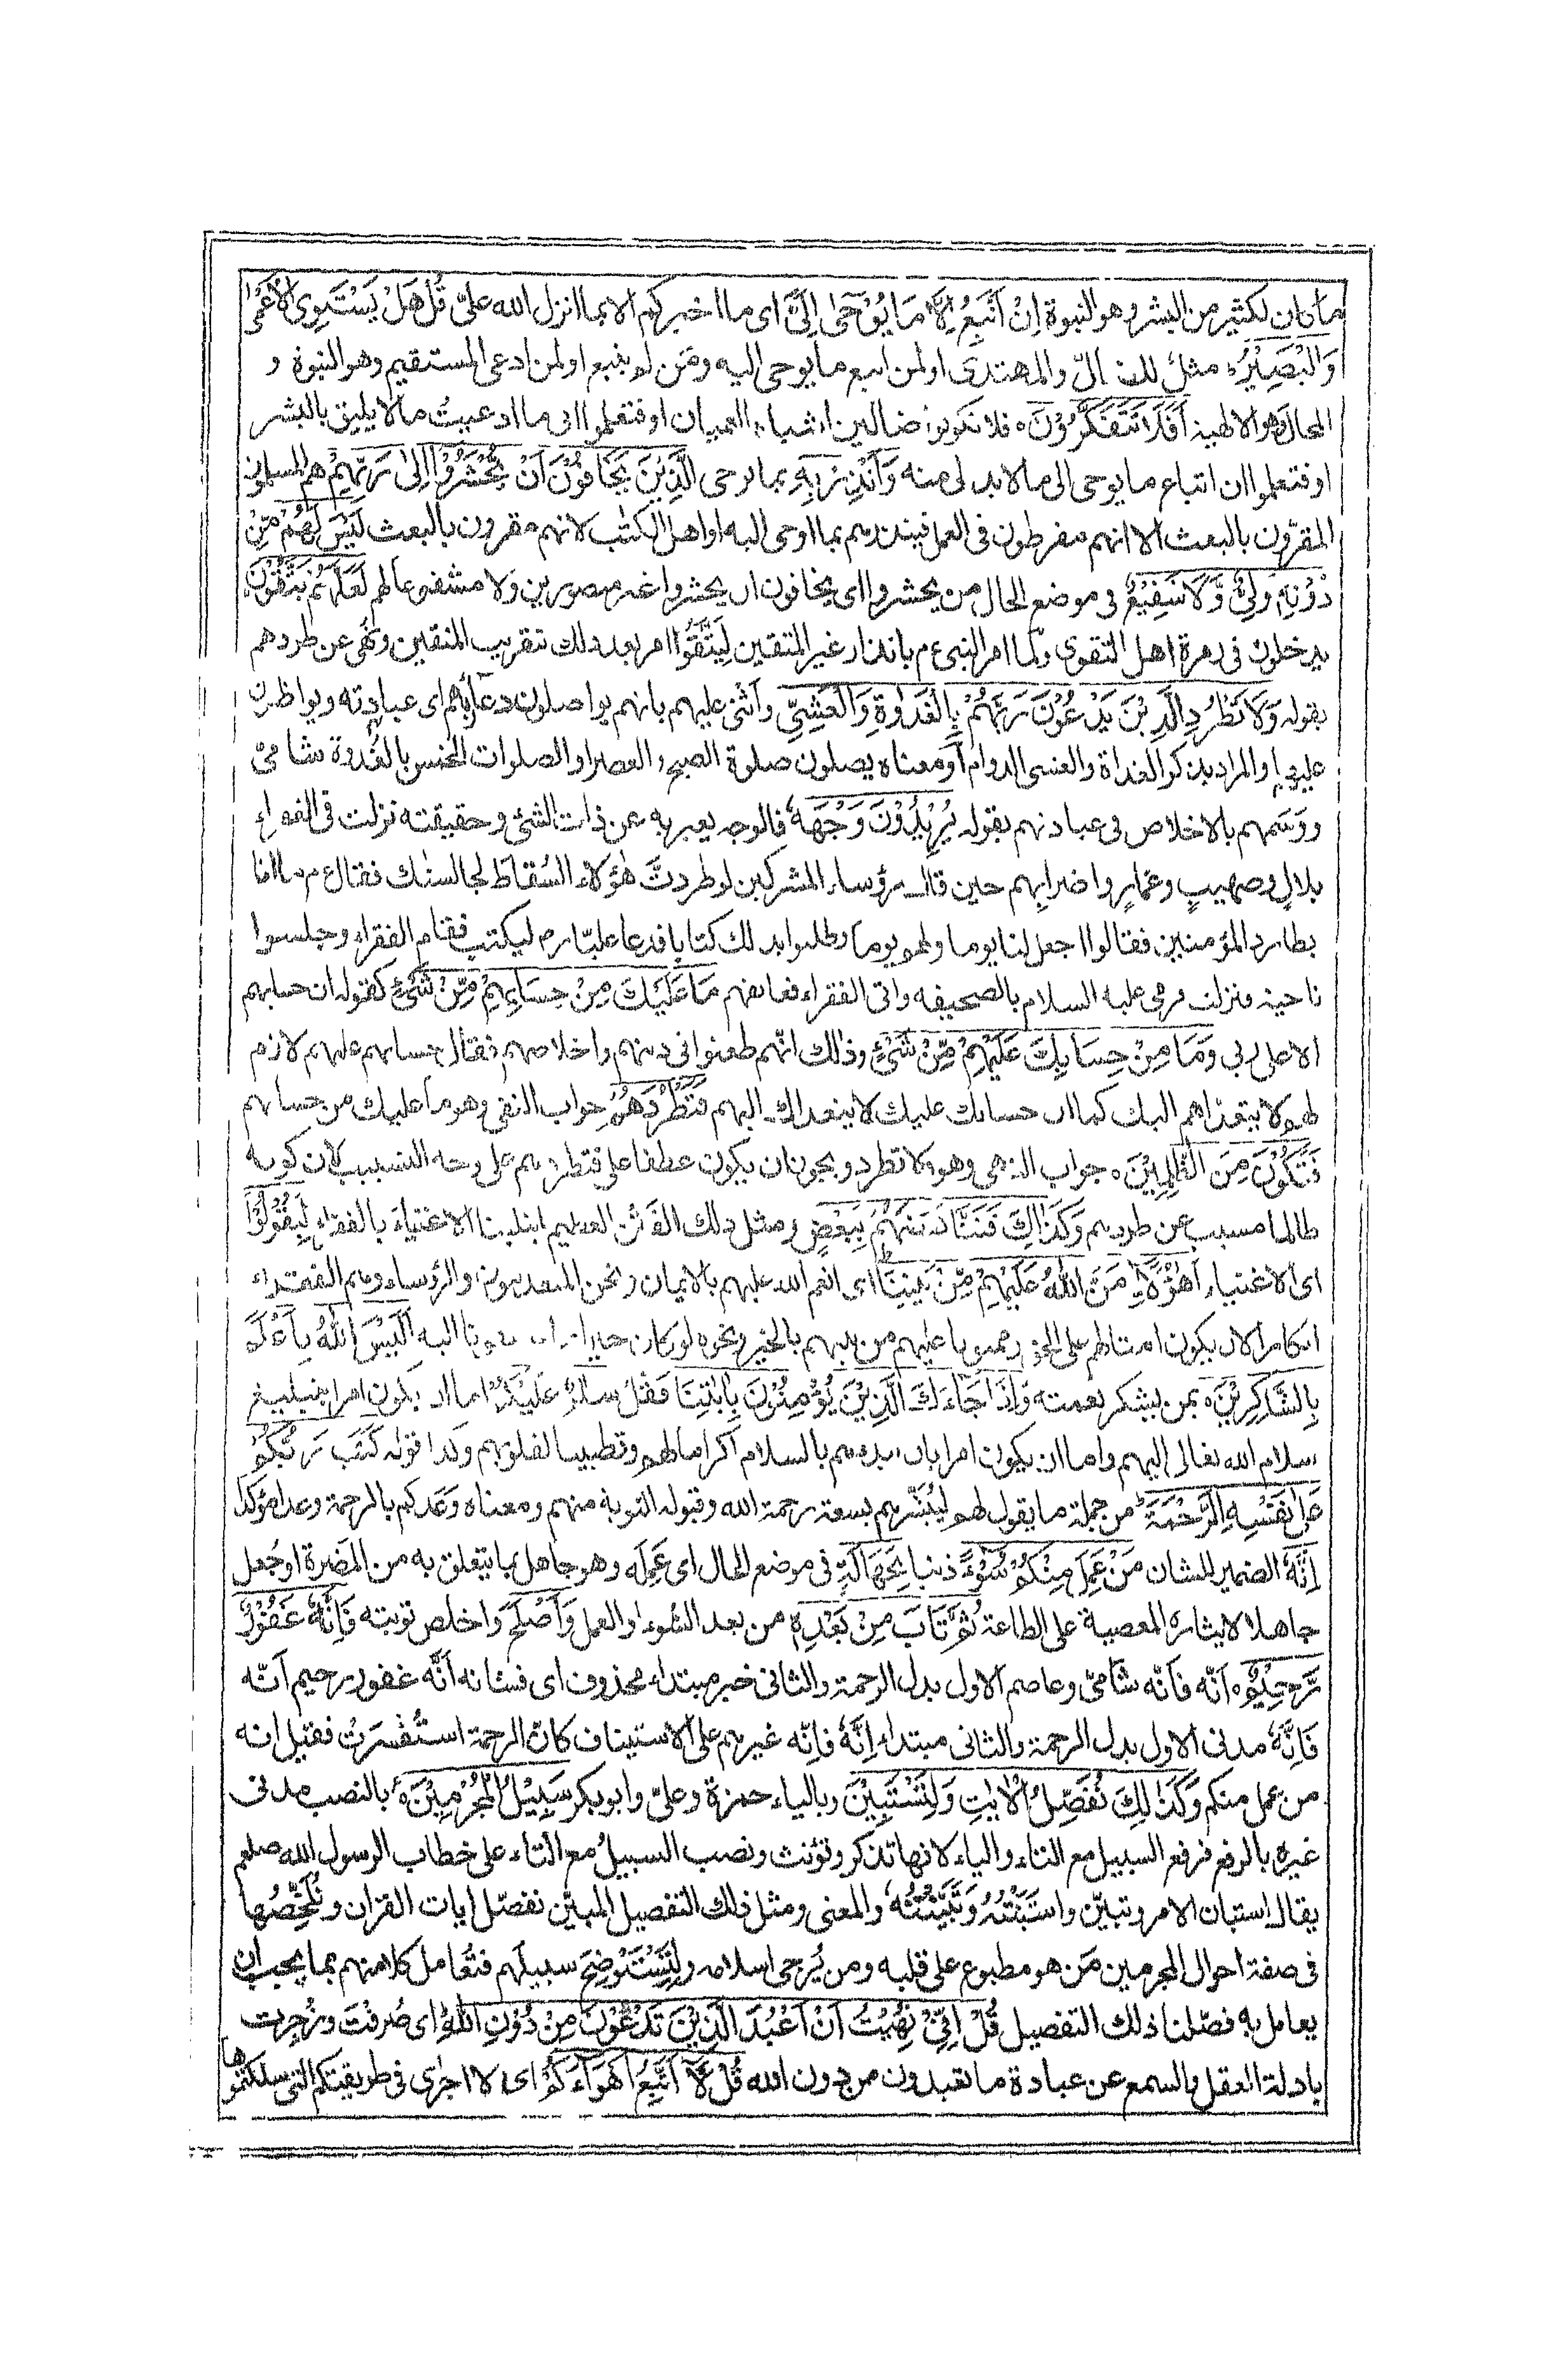 ما كان لكثير من البشر وهو النبوة اِنْ اَتَّبِعُ اِلَّا مَا يُوْحٰى اِلَيَّ اى ما اخبركم الا بما انزل الله علىّ قُلْ هَلْ يَسْتَوِى الْاَعْمٰى
وَالْبَصِيْرُ مثل للضال والمهتدى او لمن اتبع ما يوحى اليه ومَن لم يتبع او لمن ادعى المستقيم وهو النبوة و
المحال وهو الالهية اَفَلَا تَتَفَكَّرُوْنَ ه فلا تكونوا ضالين اشباه العميان او فتعلموا انى ما ادعيت ما لا يليق بالبشر
او فتعلموا ان اتباع ما يوحى الى ما لا بد لى منه وَاَنْذِرْ بِهِ بما يوحى الَّذِيْنَ يَخَافُوْنَ اَنْ يُّحْشَرُوْا اِلٰى رَبِّهِمْ هم المسلمون
المقرّون بالبعث الا انهم مفرطون فى العمل فينذرهم بما اوحى اليه او اهل الكتٰب لانهم مقرون بالبعث لَيْسَ لَهُمْ مِّنْ
دُوْنِهٖ وَلِيٌّ وَّلَا شَفِيْعٌ فى موضع الحال من يحشروا اى يخافون ان يحشروا غير منصورين ولا مشفوعا لهم لَعَلَّهُمْ يَتَّقُوْنَ
يدخلون فى زمرة اهل التقوى ولما امر النبى ع م بانذار غير المتقين لِيَتَّقُوا امر بعد ذلك بتقريب المتقين ونَهى عن طردهم
بقوله وَلَا تَطْرُدِ الَّذِيْنَ يَدْعُوْنَ رَبَّهُمْ بِالْغَدٰوةِ وَالْعَشِيِّ وأثنى عليهم بانهم يواصلون دعاء ربهم اى عبادته ويواظبون
عليها والمراد بذكر الغداة والعشى الدوام أو معناه يصلون صلوة الصبح والعصر او الصلوات الخمس بالغُدوة شامىّ
ووَسَمهم بالاخلاص فى عبادتهم بقوله يُرِيْدُوْنَ وَجْهَهٗ فالوجه يعبر به عن ذات الشئ وحقيقته نزلت فى الفقراءِ
بلالٍ وصهيبٍ وعمارٍ واضرابِهم حين قال رؤساء المشركين لو طردتَّ هٰؤلاء السُقاطَ لجالسنٰك فقال ع م ما انا
بطارد المؤمنين فقالوا اجعل لنا يوما ولهم يوما وطلبوا بذلك كتابا فدعا عليّا رض ليكتب فقام الفقراء وجلسوا
ناحية فنزلت فرمى عليه السلام بالصحيفة واتى الفقراء فعانقهم مَا عَلَيْكَ مِنْ حِسَابِهِمْ مِّنْ شَيْءٍ كقوله ان حسابهم
الا على ربى وَمَا مِنْ حِسَابِكَ عَلَيْهِمْ مِّنْ شَيْءٍ وذلك انّهم طعنوا فى دينهم واخلاصهم فقال حسابهم عليهم لازم
لهم لا يتعدّاهم اليك كما ان حسابك عليك لا يتعداك اليهم فَتَطْرُدَهُمْ جواب النفى وهو ما عليك من حسابهم
فَتَكُوْنَ مِنَ الظّٰلِمِيْنَ ه جواب النهى وهو ولا تطرد ويجوز ان يكون عطفا على فتطردهم على وجه التسبيب لان كونه
ظالما مسبب عن طردهم وَكَذٰلِكَ فَتَنَّا بَعْضَهُمْ بِبَعْضٍ ومثل ذلك الفَتْن العظيم ابتلينا الاغنياءَ بالفقراءِ لِيَقُوْلُوْا
اى الاغنياء اَهٰؤُلَاءِ مَنَّ اللّٰهُ عَلَيْهِمْ مِّنْ بَيْنِنَا اى انعم الله عليهم بالايمان ونحن المقدمون والرؤساء وهم الفقراء
انكارا لان يكون امثالهم على الحق وممنونا عليهم من بينهم بالخير ونحوه لو كان خيرا ما سبقونا اليه اَلَيْسَ اللّٰهُ بِاَعْلَمَ
بِالشّٰكِرِيْنَ ه بمن يشكر نعمته وَاِذَا جَاءَكَ الَّذِيْنَ يُؤْمِنُوْنَ بِاٰيٰتِنَا فَقُلْ سَلٰمٌ عَلَيْكُمْ اما ان يكون امرا بتبليغ
سلام الله تعالى اليهم واما ان يكون امرا بان يبدءهم بالسلام اكراما لهم وتطييبا لقلوبهم وكذا قوله كَتَبَ رَبُّكُمْ
عَلٰى نَفْسِهِ الرَّحْمَةَ من جملة ما يقول لهم ليُبَشّرهم بسعة رحمة الله وقبوله التوبة منهم ومعناه وَعَدكم بالرحمة وعدا مؤكدا
اِنَّهٗ الضمير للشان مَنْ عَمِلَ مِنْكُمْ سُوْءً ذنبا بِجَهَالَةٍ فى موضع الحال اى عَمِلَه وهو جاهل بما يتعلق به من المَضرة او جُعل
جاهلا لايثاره المعصية على الطاعة ثُمَّ تَابَ مِنْ بَعْدِهٖ من بعد السُوء او العمل وَاَصْلَحَ واخلص توبته فَاِنَّهٗ غَفُوْرٌ
رَّحِيْمٌ ه اَنّه فاَنّه شامىّ وعاصم الاول بدل الرحمة والثانى خبر مبتداء محذوف اى فشانه اَنَّه غفور رحيم اَنّه
فَاِنَّهٗ مدنى الاول بدل الرحمة والثانى مبتداء اِنَّهٗ فاِنّه غيرهم على الاستيناف كانّ الرحمة استُفْسِرَتْ فقيل انه
من عمل منكم وَكَذٰلِكَ نُفَصِّلُ الْاٰيٰتِ وَلِتَسْتَبِيْنَ وبالياء حمزة وعلىّ وابو بكر سَبِيْلُ الْمُجْرِمِيْنَ ه بالنصب مدنى
غيره بالرفع فرفع السبيل مع التاء والياء لانها تذكر وتؤنث ونصب السبيلُ مع التاء على خطاب الرسول الله صلعم
يقال استبان الامر وتبيّن واستَبَنْتُهُ وَتَبَيَّنْتُهٗ والمعنى ومثل ذلك التفصيل المبيَّن نفصّل ايات القران ونُلَخِّصُها
فى صفة احوال المجرمين مَن هو مطبوع على قلبه ومن يُرجى اسلامه ولِتَسْتَوْضِحَ سبيلَهم فتُعامل كلا منهم بما يجب ان
يعامل به فصّلنا ذلك التفصيل قُلْ اِنِّيْ نُهِيْتُ اَنْ اَعْبُدَ الَّذِيْنَ تَدْعُوْنَ مِنْ دُوْنِ اللّٰهِ اى صُرفْتُ وزُجِرت
بادلة العقل والسمع عن عبادة ما تعبدون من دون الله قُلْ لَّا اَتَّبِعُ اَهْوَاءَكُمْ اى لا اجرى فى طريقتكم التى سلكتموها